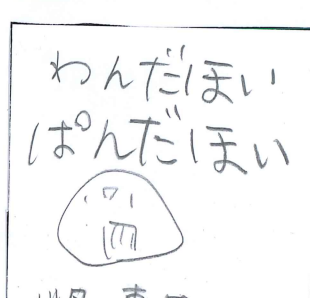 わんだほい
ぱんだほい